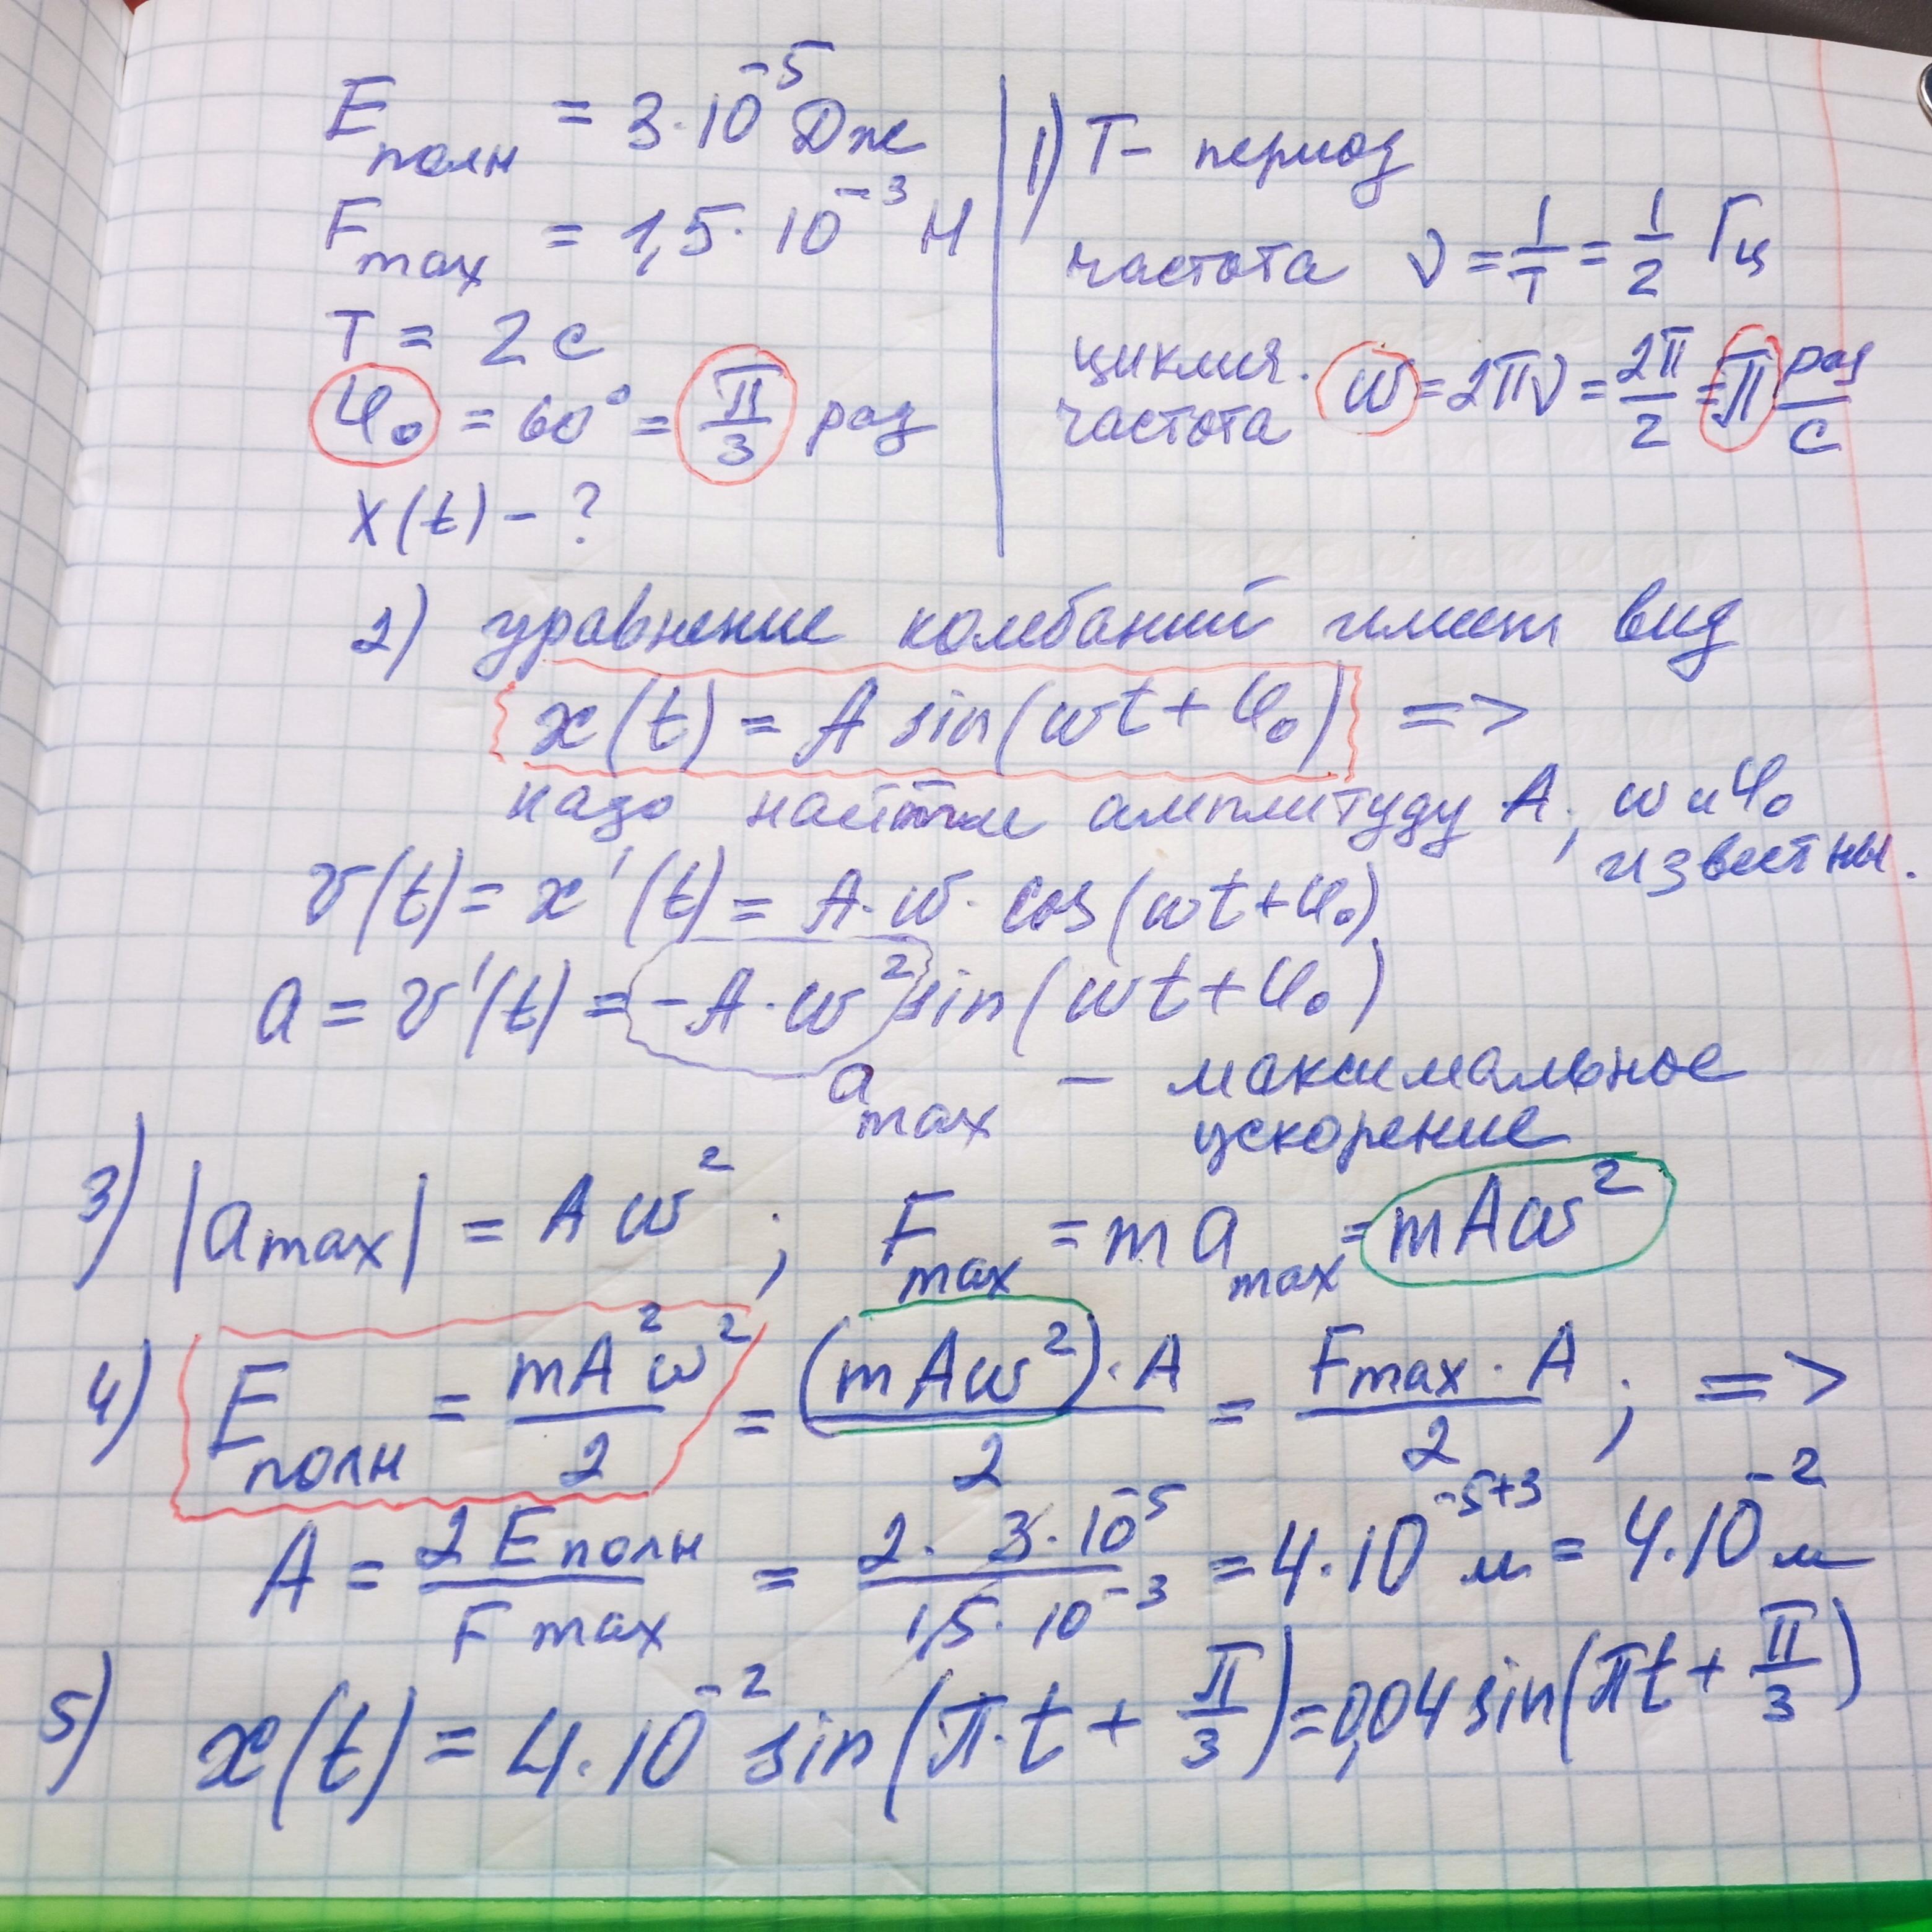 Eполн = 3·10⁻⁵ Дж
Fmax = 1,5·10⁻³ Н
T = 2 с
φ₀ = 60° = π/3 рад
X(t) - ?
1) T - период
частота ν = 1/T = 1/2 Гц
циклич. частота ω = 2πν = 2π/2 = π рад/с
2) уравнение колебаний имеет вид
x(t) = A sin(ωt + φ₀) =>
надо найти амплитуду A; ω и φ₀ известны.
v(t) = x'(t) = A·ω·cos(ωt+φ₀)
a = v'(t) = -A·ω² sin(ωt+φ₀)
amax - максимальное ускорение
3) |amax| = Aω² ; Fmax = m amax = mAω²
4) Eполн = mA²ω²/2 = (mAω²)·A/2 = Fmax·A/2 ; =>
A = 2Eполн/Fmax = 2·3·10⁻⁵/1,5·10⁻³ = 4·10⁻⁵⁺³ м = 4·10⁻² м
5) x(t) = 4·10⁻² sin(π·t + π/3) = 0,04 sin(πt + π/3)